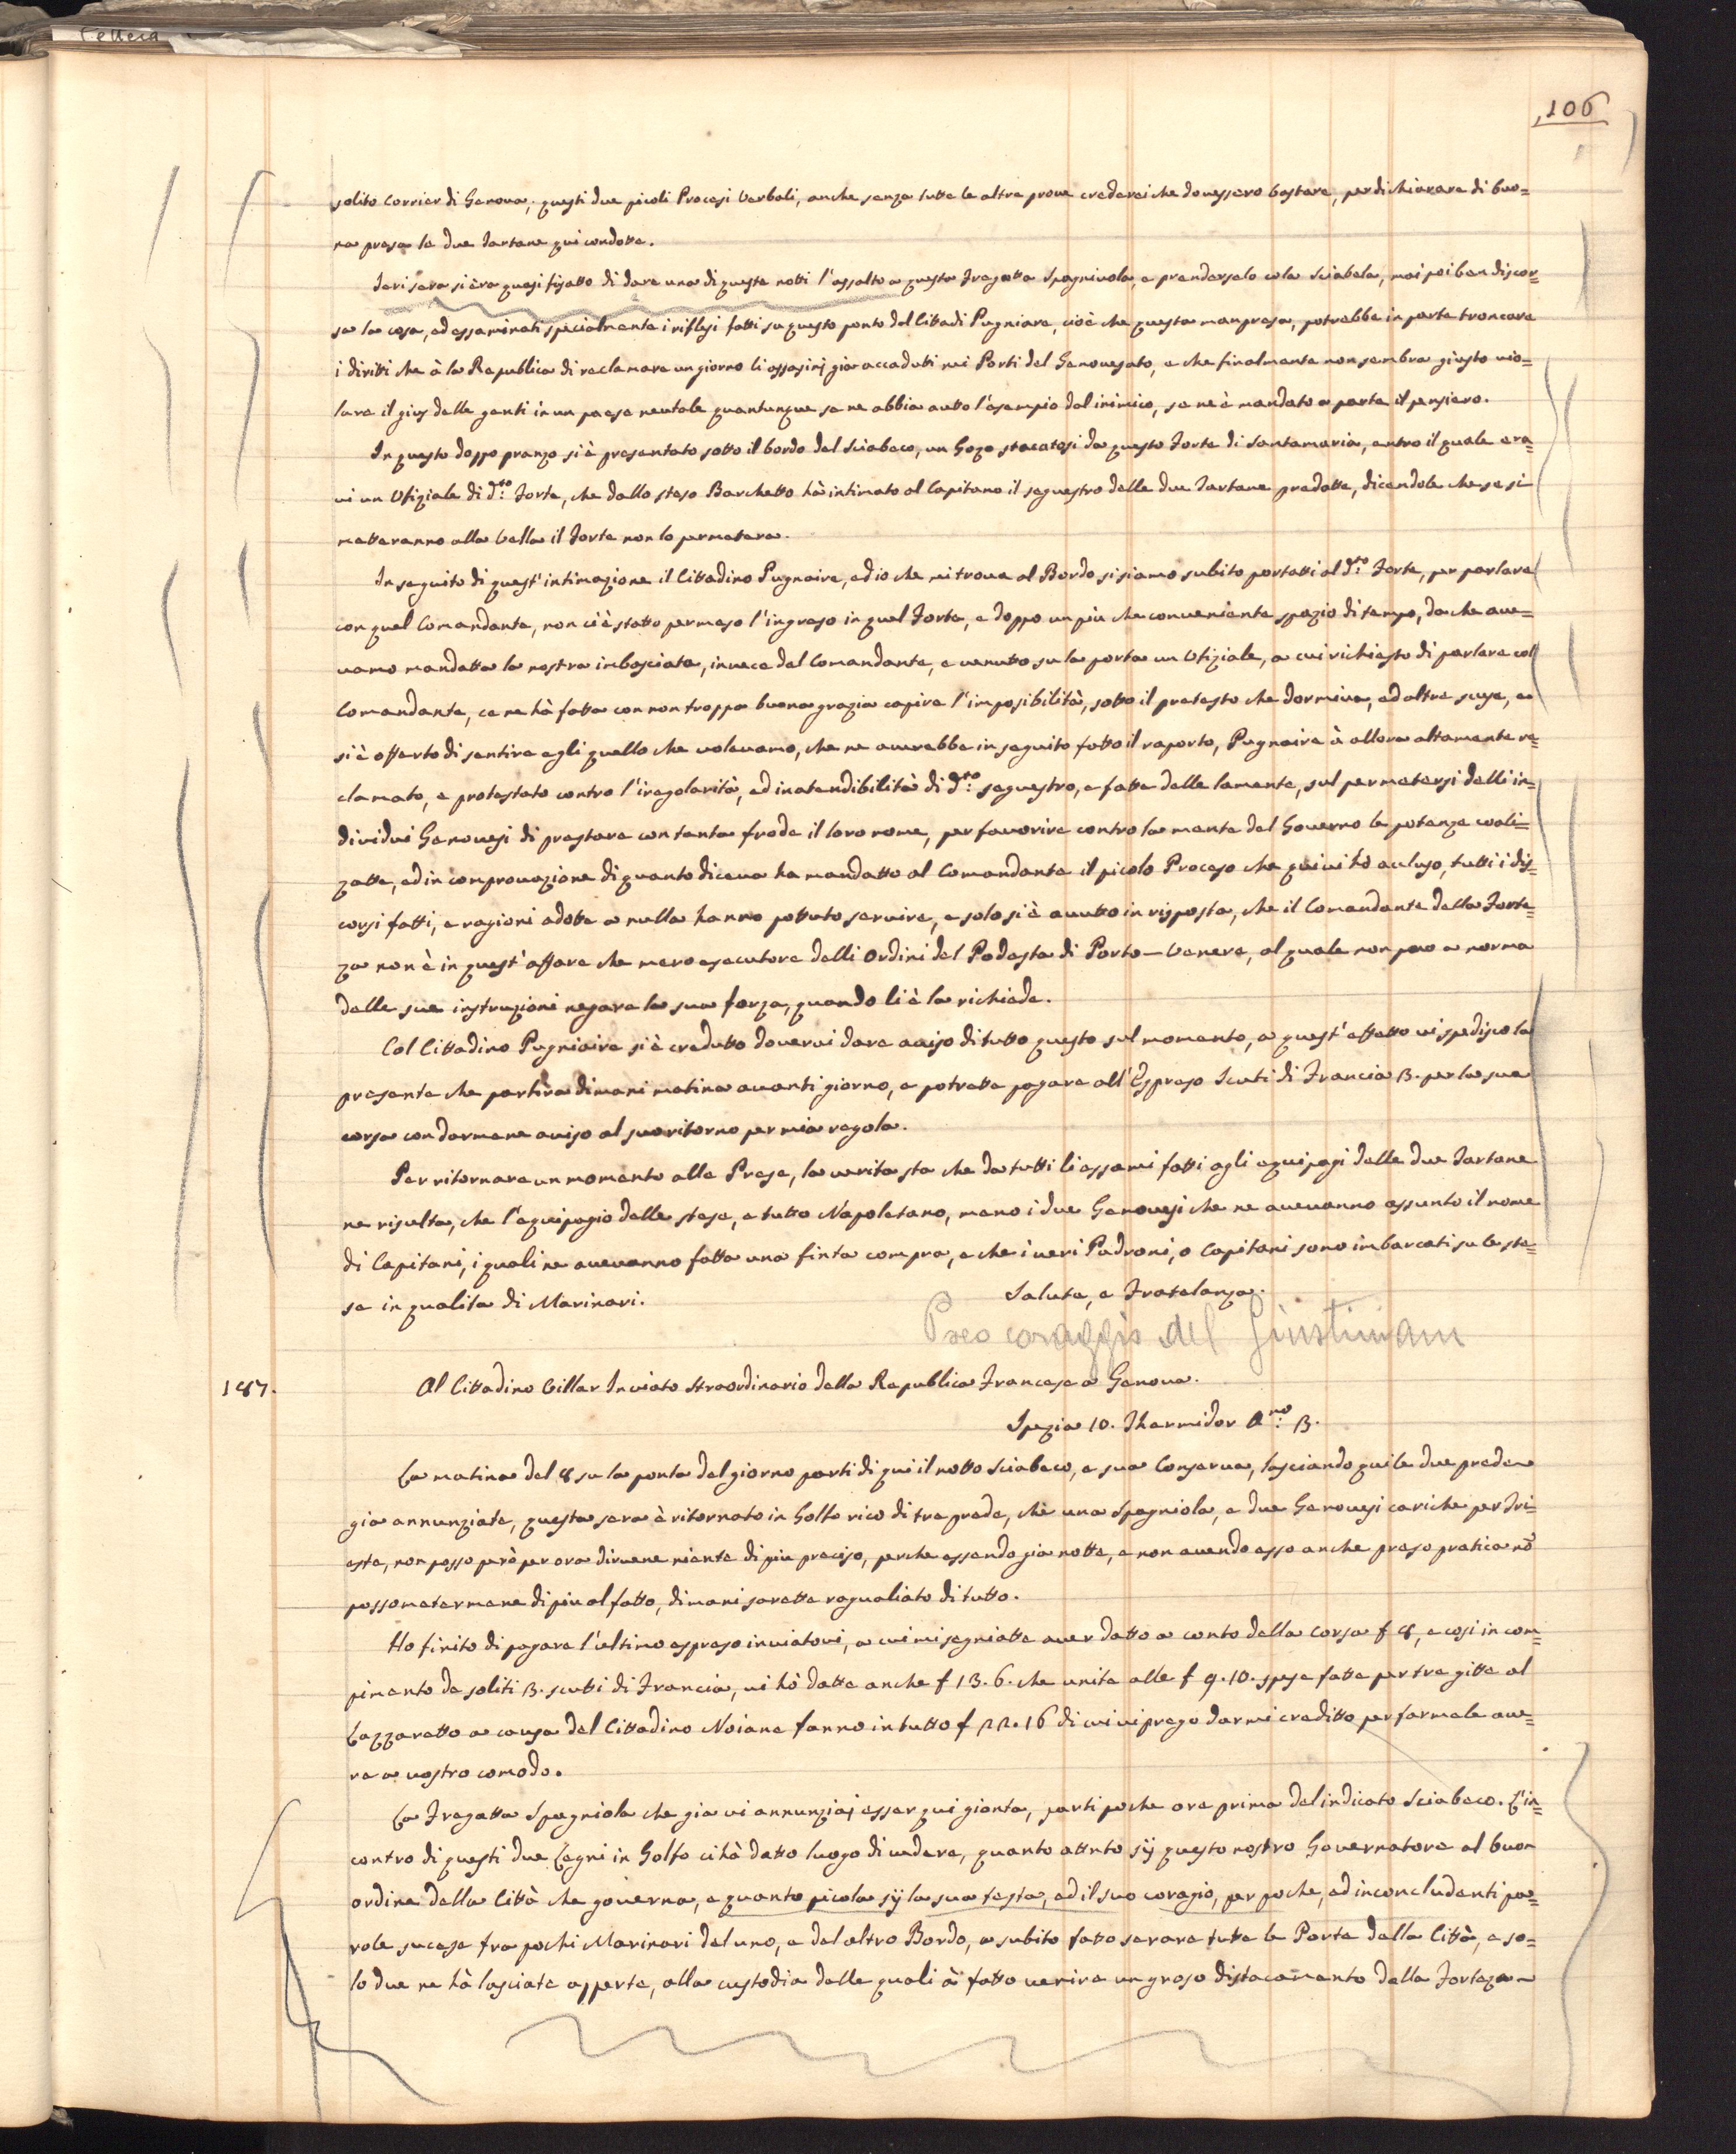 106
solito Corrier di Genova, questi due picoli Procesi Verbali, anche senza tutte le altre prove crederei che dovessero bastare, per dichiarare di buo=
na presa le due Tartane qui condotte.
Jeri sera si èra quasi fisatto di dare una di queste notti l'assalto a questa Fregatta Spagniuola, e prendersela cola Sciabola, mai poi ben discor=
sa la cosa, ed essaminati specialmente i riflesi fatti su questo ponto dal Cittadi Pugniare, cioè che questa manpresa, potrebbe in parte troncare
i diritti che à la Republica di reclamare un giorno li assasinj gia accadutti nei Porti del Genovesato, e che finalmente non sembra giusto vio=
lare il gius delle genti in un paese neutale quantunque se ne abbia autto l'esempio dal inimico, se ne è mandato a parte il pensiero.
In questo doppo pranzo si è presentato sotto il bordo del Sciabeco, un Gozo stacatosi da questo Forte di Santamaria, entro il quale era=
vi un Ufiziale di d.to Forte, che dallo steso Barchetto hà intimato al Capitano il sequestro delle due Tartane predatte, dicendole che se si
metteranno alla Vella il Forte non lo permetera.
In seguito di quest'intimazione il Cittadino Pugnaire, ed io che mi trova al Bordo si siamo subito portatti al d.to Forte, per parlare
con quel Comandante, non ci è statto permeso l'ingreso in quel Forte, e doppo un più che conveniente spazio di tempo, da che ave=
vamo mandatta la nostra imbasciata, invece del Comandante, e venutto su la porta un Ufiziale, a cui richiesto di parlare col
Comandante, ce ne hà fatta con non troppa buona grazia capire l'imposibilità, sotto il pretesto che dormiva, ed altre scuse, e
si è offerto di sentire egli quello che volevamo, che ne averebbe in seguito fatto il raporto, Pugnaire à allora altamente re=
clamato, e protestato contro l'iregolarità, ed inatendibilità di d.to sequestro, e fatte delle lamente, sul permetersi dalli in=
dividui Genovesi di prestare con tanta frode il loro nome, per favorire contro la mente del Governo le potenze coali=
zatte, ed in comprovazione di quanto diceva ha mandatto al Comandante il picolo Proceso che qui vi hò acluso, tutti i dis=
corsi fatti, e ragioni adotte a nulla hanno pottuto servire, e solo si è avutto in risposta, che il Comandante della Forte=
za non è in quest'affare che mero esecutore delli Ordini del Podesta di Porto-Venere, al quale non puo a norma
delle sue instruzioni negare la sua forza, quando li è la richiede.
Col Cittadino Pugniaire si è credutto dovervi dare aviso di tutto questo sul momento, a quest'effetto vi spedisco la
presente che partira dimani matina avanti giorno, e potrette pagare all'Espreso Scuti di Francia 3. per la sua
corsa con darmene aviso al suo ritorno per mia regola.
Per ritornare un momento alle Prese, la verita sta che da tutti li essami fatti agli equipagi delle due Tartane
ne risulta, che l'equipagio delle stese, e tutto Napoletano, meno i due Genovesi che ne avevanno assunto il nome
di Capitani, i quali ne avevanno fatta una finta compra, e che i veri Padroni, o Capitani sono imbarcati su le ste=
se in qualita di Marinari.
Salute, e Fratelanza.
Poco coraggio del Giustiniani
187.
Al Cittadino Villar Inviato straordinario della Republica Francese a Genova.
Spezia 10. Thermidor A.no 3.
La matina del 8 su la ponta del giorno parti di qui il notto Sciabeco, e sua Conserva, lasciando qui le due prede
gia annunziate, questa sera è ritornato in Golfo rico di tre prede, chè una Spagniola, e due Genovesi cariche per Tri=
este, non posso però per ora dirvene niente di piu preciso, perche essendo gia notte, e non avendo esso anche preso pratica nō
posso metermene di piu al fatto, dimani sarette ragualiato di tutto.
Ho finito di pagare l'ultimo espreso inviatovi, a cui mi segniatte aver datto a conto della Corsa f 8, e cosi in com=
pimento de soliti 3. scutti di Francia, vi hò datte anche f 13. 6. che unite alle f 9. 10. spese fatte per tre gitte al
Lazzaretto a causa del Cittadino Noiane fanno in tutto f 22. 16 di cui vi prego darmi creditto per farmele ave=
re a vostro comodo.
La Fregatta Spagniola che gia vi annunziaj esser qui gionta, parti poche ore prima del indicato Sciabeco. L'in=
contro di questi due Legni in Golfo ci hà datto luogo di vedere, quanto attnto sij questo nostro Governatore al buon
ordine della Città che governa, e quanto picola sij la sua testa, ed il suo coragio, per poche, ed inconcludenti pa=
role sucese fra pochi Marinari del uno, e del altro Bordo, a subito fatto serare tutte le Porte della Città, e so=
lo due ne hà lasciate apperte, alla custodia delle quali à fatto venire un groso distacamento dalla Forteza